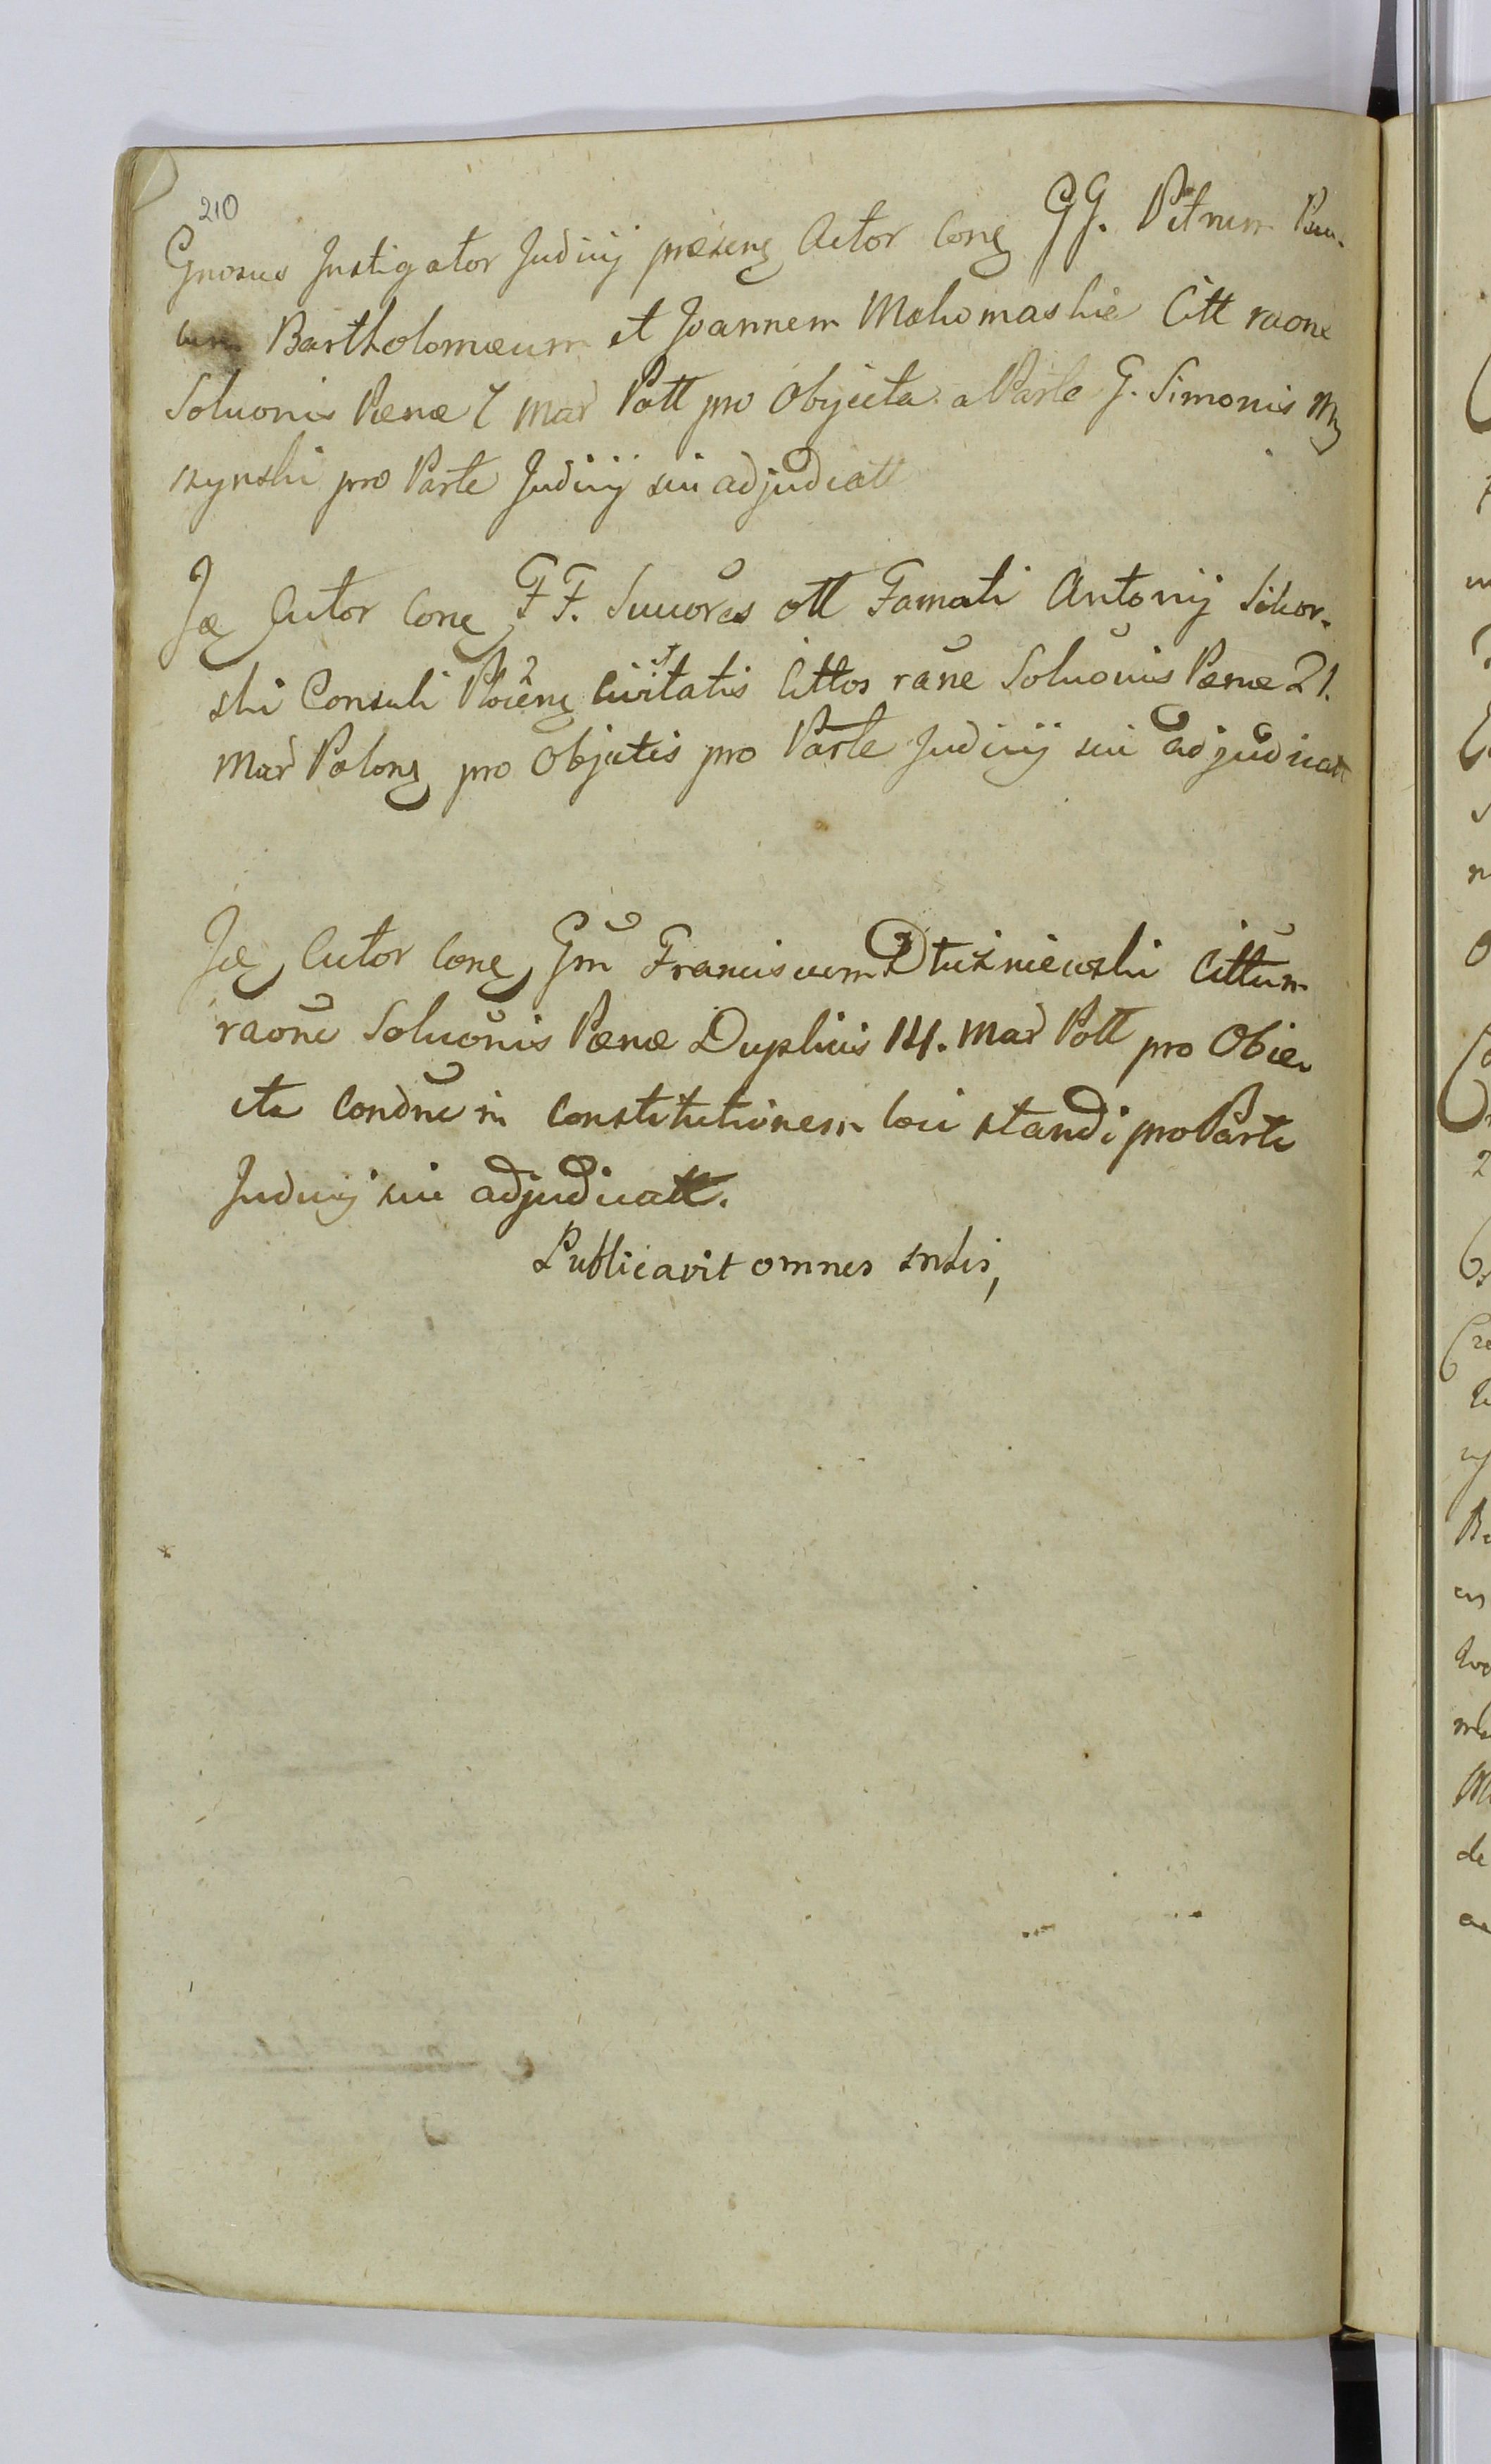 210
Gnosus Instigator Judicij præsens Actor Cone GG. Petrum Pau-
lum Bartholomæum et Joannem Mokomaskie Citt raone
Soluonis Pænæ 7 Mar Poll pro Objecta a Parte G. Simonis My
szynski pro Parte Judicij sui adjudicatt
Je Actor Cone FF. Succores ott Famati Antonij Sikor-
ski Consuli Plocens Civitatis Cittos raõne Soluõnis Pænæ 21.
Mar Polon pro Objectis pro Parte Judicij sui adjudicatt
Je Actor Cone Gm Franciscum Dłużniewski Cittum
raõne Soluõnis Pænæ Duplicis 14. Mar Poll pro Obie-
cta Condne in Constitutionem loci standi pro Parte
Judicij sui adjudicatt.
Publicavit omnes